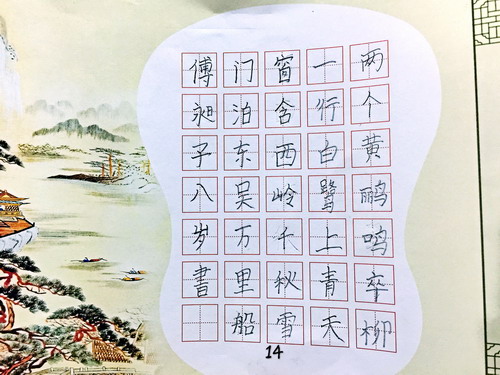 两个黄鹂鸣卒柳
一行白鹭上青天
窗含西岭千秋雪
门泊东吴万里船
傅昶子八岁書
14